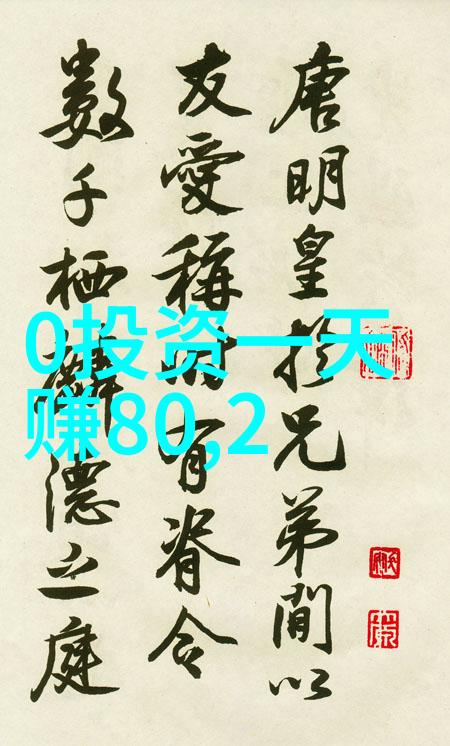 唐明皇於兄弟間以
友愛稱時有脊令
數千栖麟德之庭
0投资一天
赚80,2